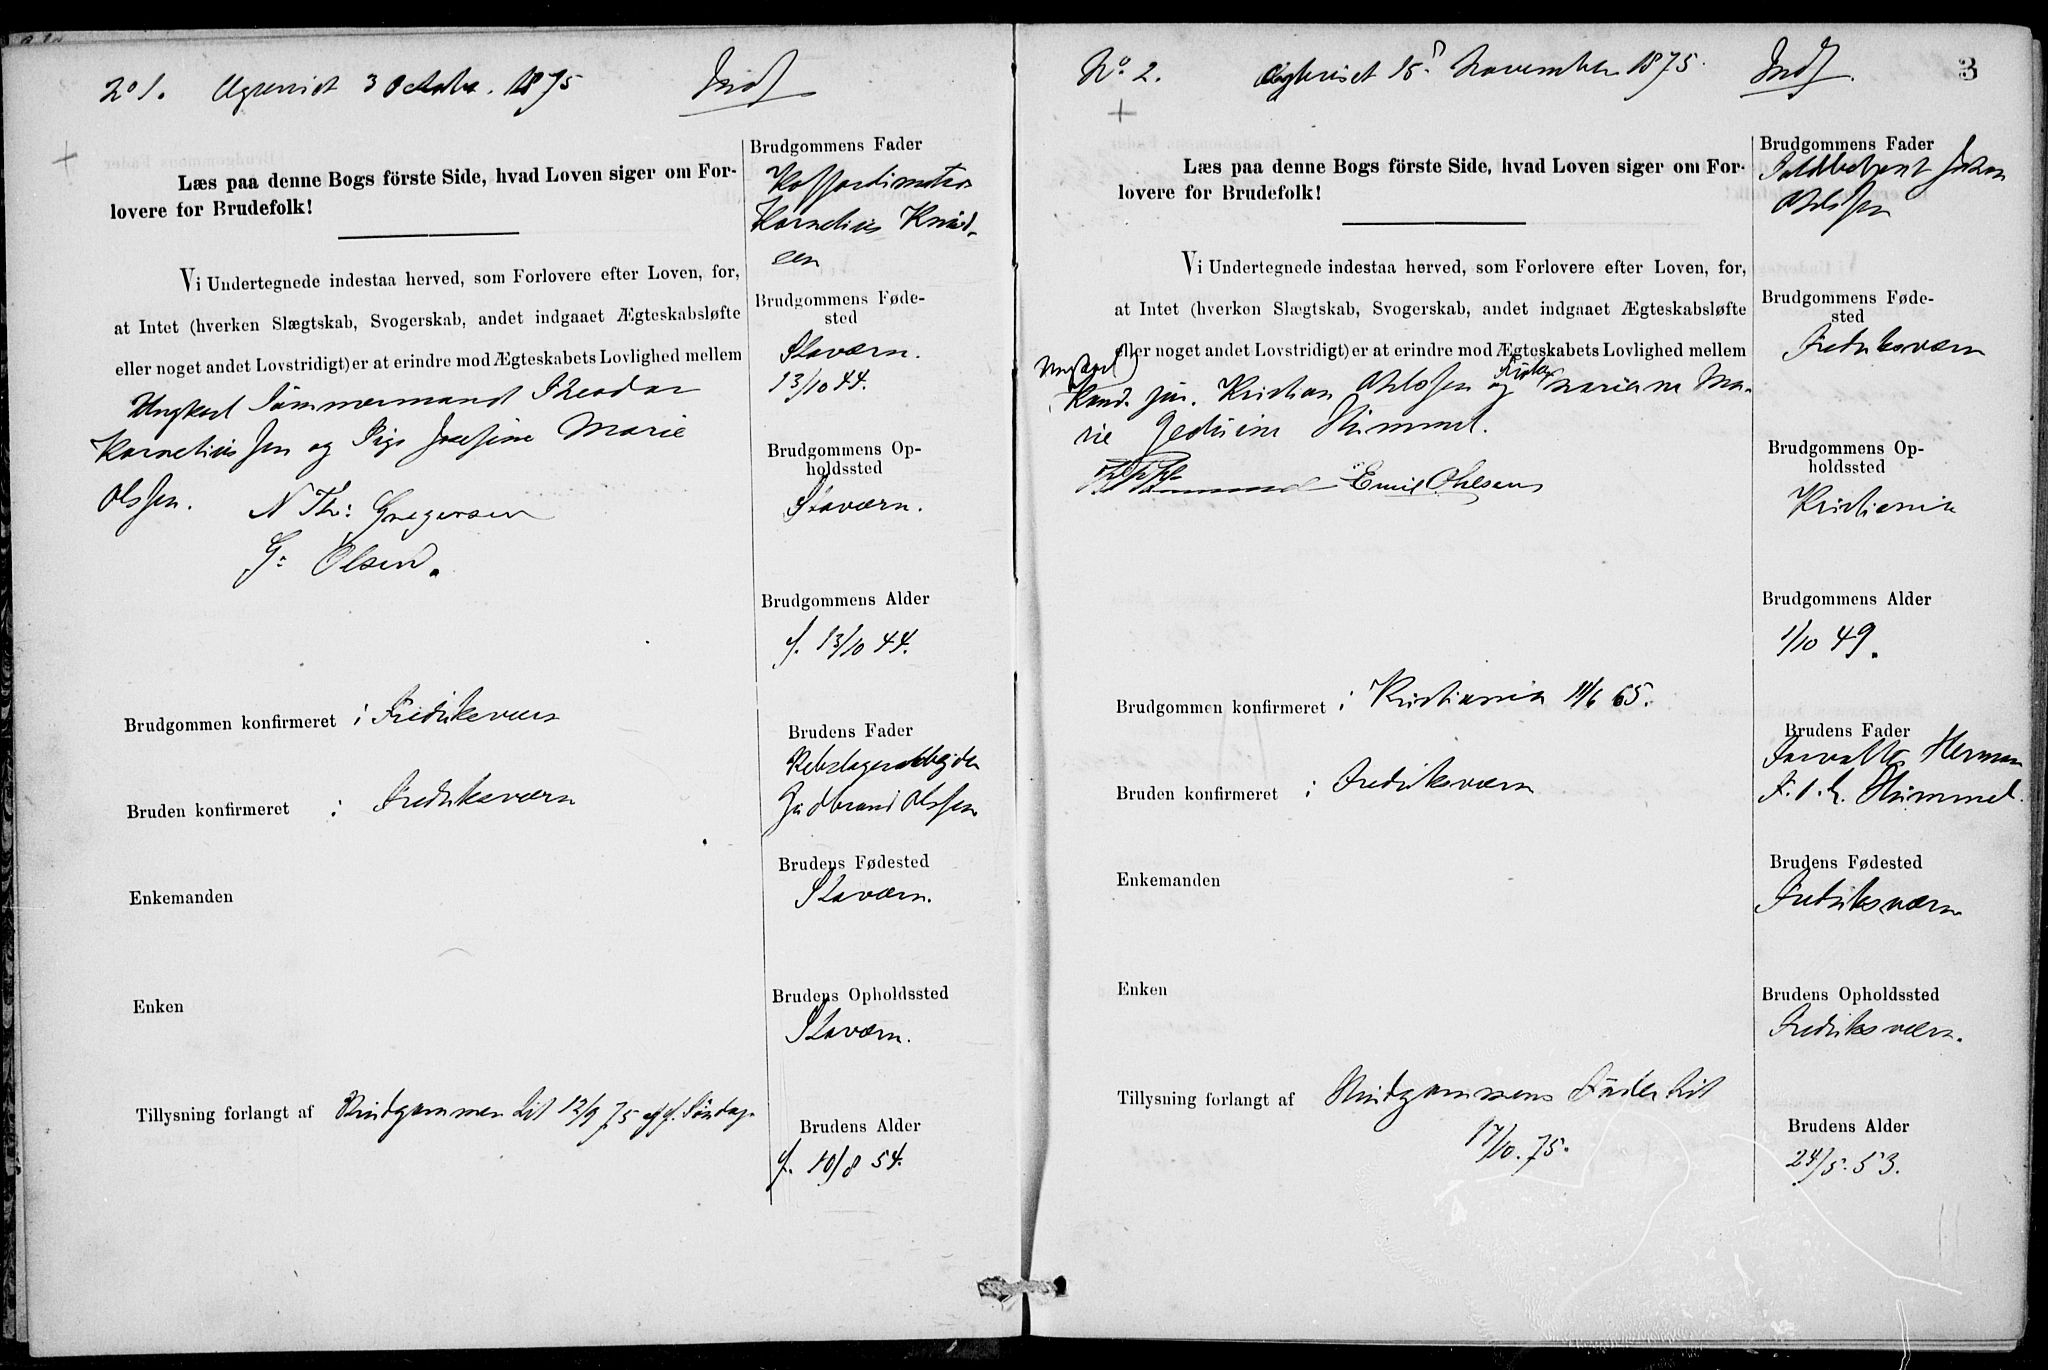 No 1. Ægteviet 3 October. 1875 Indf
Læs paa denne Bogs förste Side, hvad Loven siger om For-
lovere for Brudefolk!
Vi Undertegnede indestaa herved, som Forlovere efter Loven, for,
at Intet (hverken Slægtskab, Svogerskab, andet indgaaet Ægteskabsløfte
eller noget andet Lovstridigt) er at erindre mod Ægteskabets Lovlighed mellem
Ungkarl Tömmermand Theodor
Korneliussen og Pige Josefine Marie
Olssen.
N Th: Gregersen
G: Olsen.
Brudgommen konfirmeret i Fredriksværn
Bruden konfirmeret i Fredriksværn
Enkemanden
Enken
Tillysning forlangt af Brudgommen til 12/9 75 Söndag
Brudgommens Fader
Kornelius Knud-
sen
Brudgommens Føde-
sted
Staværn.
13/10 44.
Brudgommens Op-
holdssted
Staværn.
Brudgommens Alder
f. 13/10 44.
Brudens Fader
Rebslagerarbejder
Gudbrand Olssen
Brudens Fødested
Staværn.
Brudens Opholdssted
Staværn.
Brudens Alder
f. 10/8 54.
No. 2. November 1875. Indf. 3
Læs paa denne Bogs förste Side, hvad Loven siger om For-
lovere for Brudefolk!
Vi Undertegnede indestaa herved, som Forlovere efter Loven, for,
at Intet (hverken Slægtskab, Svogerskab, andet indgaaet Ægteskabsløfte
eller noget andet Lovstridigt) er at erindre mod Ægteskabets Lovlighed mellem
Ungkarl
Kand. jur. Kristian Ohlssen og Frøken Mariane Ma-
rie Hummel.
Emil Ohlsen
Brudgommen konfirmeret i Kristiania 11/6 65.
Bruden konfirmeret i Fredriksværn
Enkemanden
Enken
Tillysning forlangt af Brudgommens Fader til
17/10. 75.
Brudgommens Fader
Toldbetjent Johan
Ohlssen
Brudgommens Føde-
sted
Fredriksværn
Brudgommens Op-
holdssted
Kristiania
Brudgommens Alder
1/10 49.
Brudens Fader
Forvalter Herman
Hummel.
Brudens Fødested
Fredriksværn
Brudens Opholdssted
Fredriksværn.
Brudens Alder
24/5. 53.